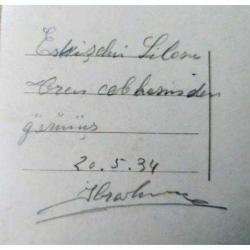 Eskişehir Silosu
cephesinden
görünüş
20.5.34
İbrahim